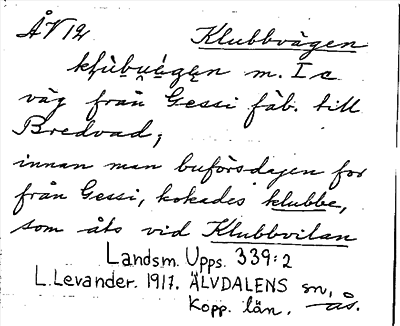 ÅV12 Klubbvägen
m. I c
väg från Gessi fäb. till
Bredvad;
innan man buförsdajen for
från Gessi, kokades klubbe,
som åts vid Klubbvilan
Landsm. Upps. 339:2
L.Levander. 1917. ÄLVDALENS sn,
Kopp. län. ås.